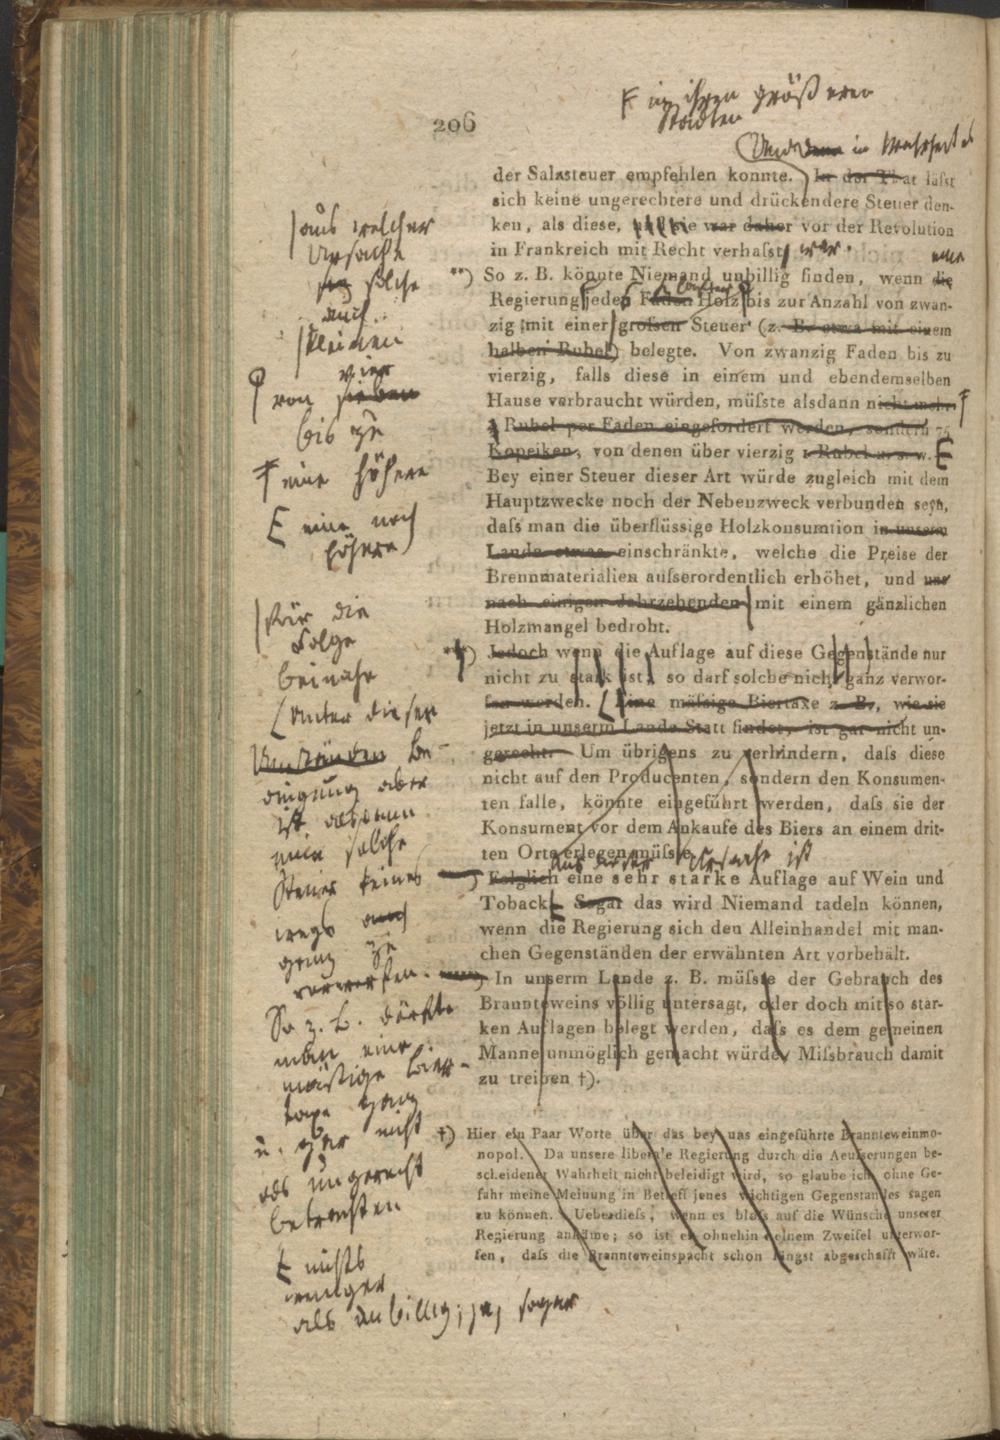 206
F in ihren größeren
Städten
Und in Wahrheit
der Salzsteuer empfehlen konnte. In der That läfst
sich keine ungerechtere und drückendere Steuer den-
ken, als diese, und sie war daher vor der Revolution
in Frankreich mit Recht verhafst war.
eine
**) So z. B. könnte Niemand unbillig finden, wenn die
Regierung jeden Faden Holz bis zur Anzahl von zwan-
zig mit einer grofsen Steuer (z. B. etwa mit einem
halben Rubel) belegte. Von zwanzig Faden bis zu
vierzig, falls diese in einem und ebendemselben
Hause verbraucht würden, müfste alsdann nicht mehr F
½ Rubel per Faden eingefordert werden, sondern 75
Kopeiken, von denen über vierzig 1 Rubel u. s. w. E
Bey einer Steuer dieser Art würde zugleich mit dem
Hauptzwecke noch der Nebenzweck verbunden seyn,
dafs man die überflüssige Holzkonsumtion in unserm
Lande etwas einschränkte, welche die Preise der
Brennmaterialien aufserordentlich erhöhet, und uns
nach einigen Jahrzehenden mit einem gänzlichen
Holzmangel bedroht.
***) Jedoch wenn die Auflage auf diese Gegenstände nur
nicht zu stark ist, so darf solche nicht ganz verwor-
fen werden. Eine mäfsige Biertaxe z. B., wie sie
jetzt in unserm Lande Statt findet, ist gar nicht un-
gerecht. Um übrigens zu verhindern, dafs diese
nicht auf den Producenten, sondern den Konsumen-
ten falle, könnte eingeführt werden, dafs sie der
Konsument vor dem Ankaufe des Biers an einem drit-
ten Orte erlegen müfste.
aus dieser Ursache ist
Folglich eine sehr starke Auflage auf Wein und
Toback E Sogar das wird Niemand tadeln können,
wenn die Regierung sich den Alleinhandel mit man-
chen Gegenständen der erwähnten Art vorbehält.
In unserm Lande z. B. müfste der Gebrauch des
Branntweins völlig untersagt, oder doch mit so star-
ken Auflagen belegt werden, dafs es dem gemeinen
Manne unmöglich gemacht würde, Mifsbrauch damit
zu treiben †).
†) Hier ein Paar Worte über das bey uns eingeführte Brannteweinmo-
nopol. Da unsere liberale Regierung durch die Aeufserungen be-
scheidener Wahrheit nicht beleidigt wird, so glaube ich, ohne Ge-
fahr meine Meinung in Betreff jenes wichtigen Gegenstandes sagen
zu können. Ueberdiefs, wenn es blofs auf die Wünsche unserer
Regierung ankäme; so ist es ohnehin keinem Zweifel unterwor-
fen, dafs die Brannteweinspacht schon längst abgeschafft wäre.
aus welcher
Ursache
sie solche
auch
kleinen
vier
von sieben
bis zu
F eine höhere
E eine noch
höhere
für die
Folge
beinahe
(unter dieser
Umständen Be-
dingung aber
ist alsdann
eine solche
Steuer keines
wegs auch
ganz zu
verwerfen.
So z. B. dürfte
man eine
mäßige Bier-
taxe ganz
u. gar nicht
als ungerecht
betrachten
E nichts
weniger
als unbillig; ja, sogar